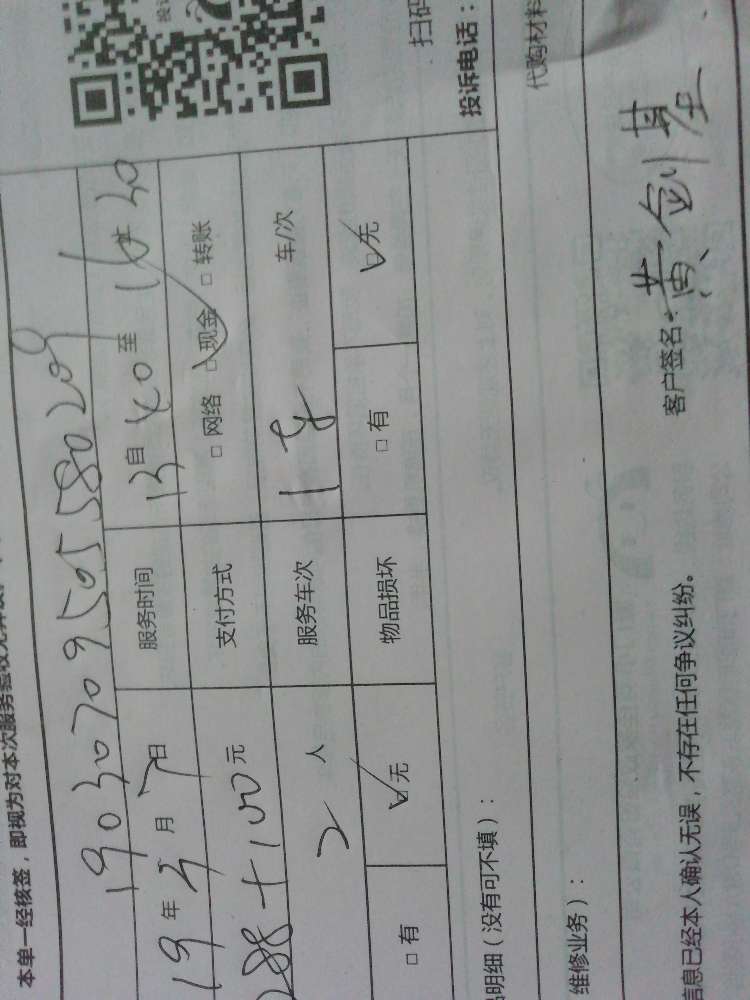 本单一经核签，即视为对本次服务验收无异议
19030709505580209
19年3月7日 服务时间 13自40至16 20
288+100元 支付方式 □网络 ☑现金 □转账
2人 服务车次 1车 车/次
□有 ☑无 物品损坏 □有 ☑无
扫码
投诉电话：
明细（没有可不填）：
代购材料
维修业务）：
信息已经本人确认无误，不存在任何争议纠纷。
客户签名：黄剑基